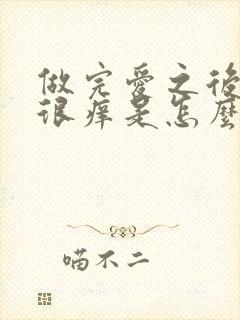 做完爱之後
很痒是怎麼
喵不二